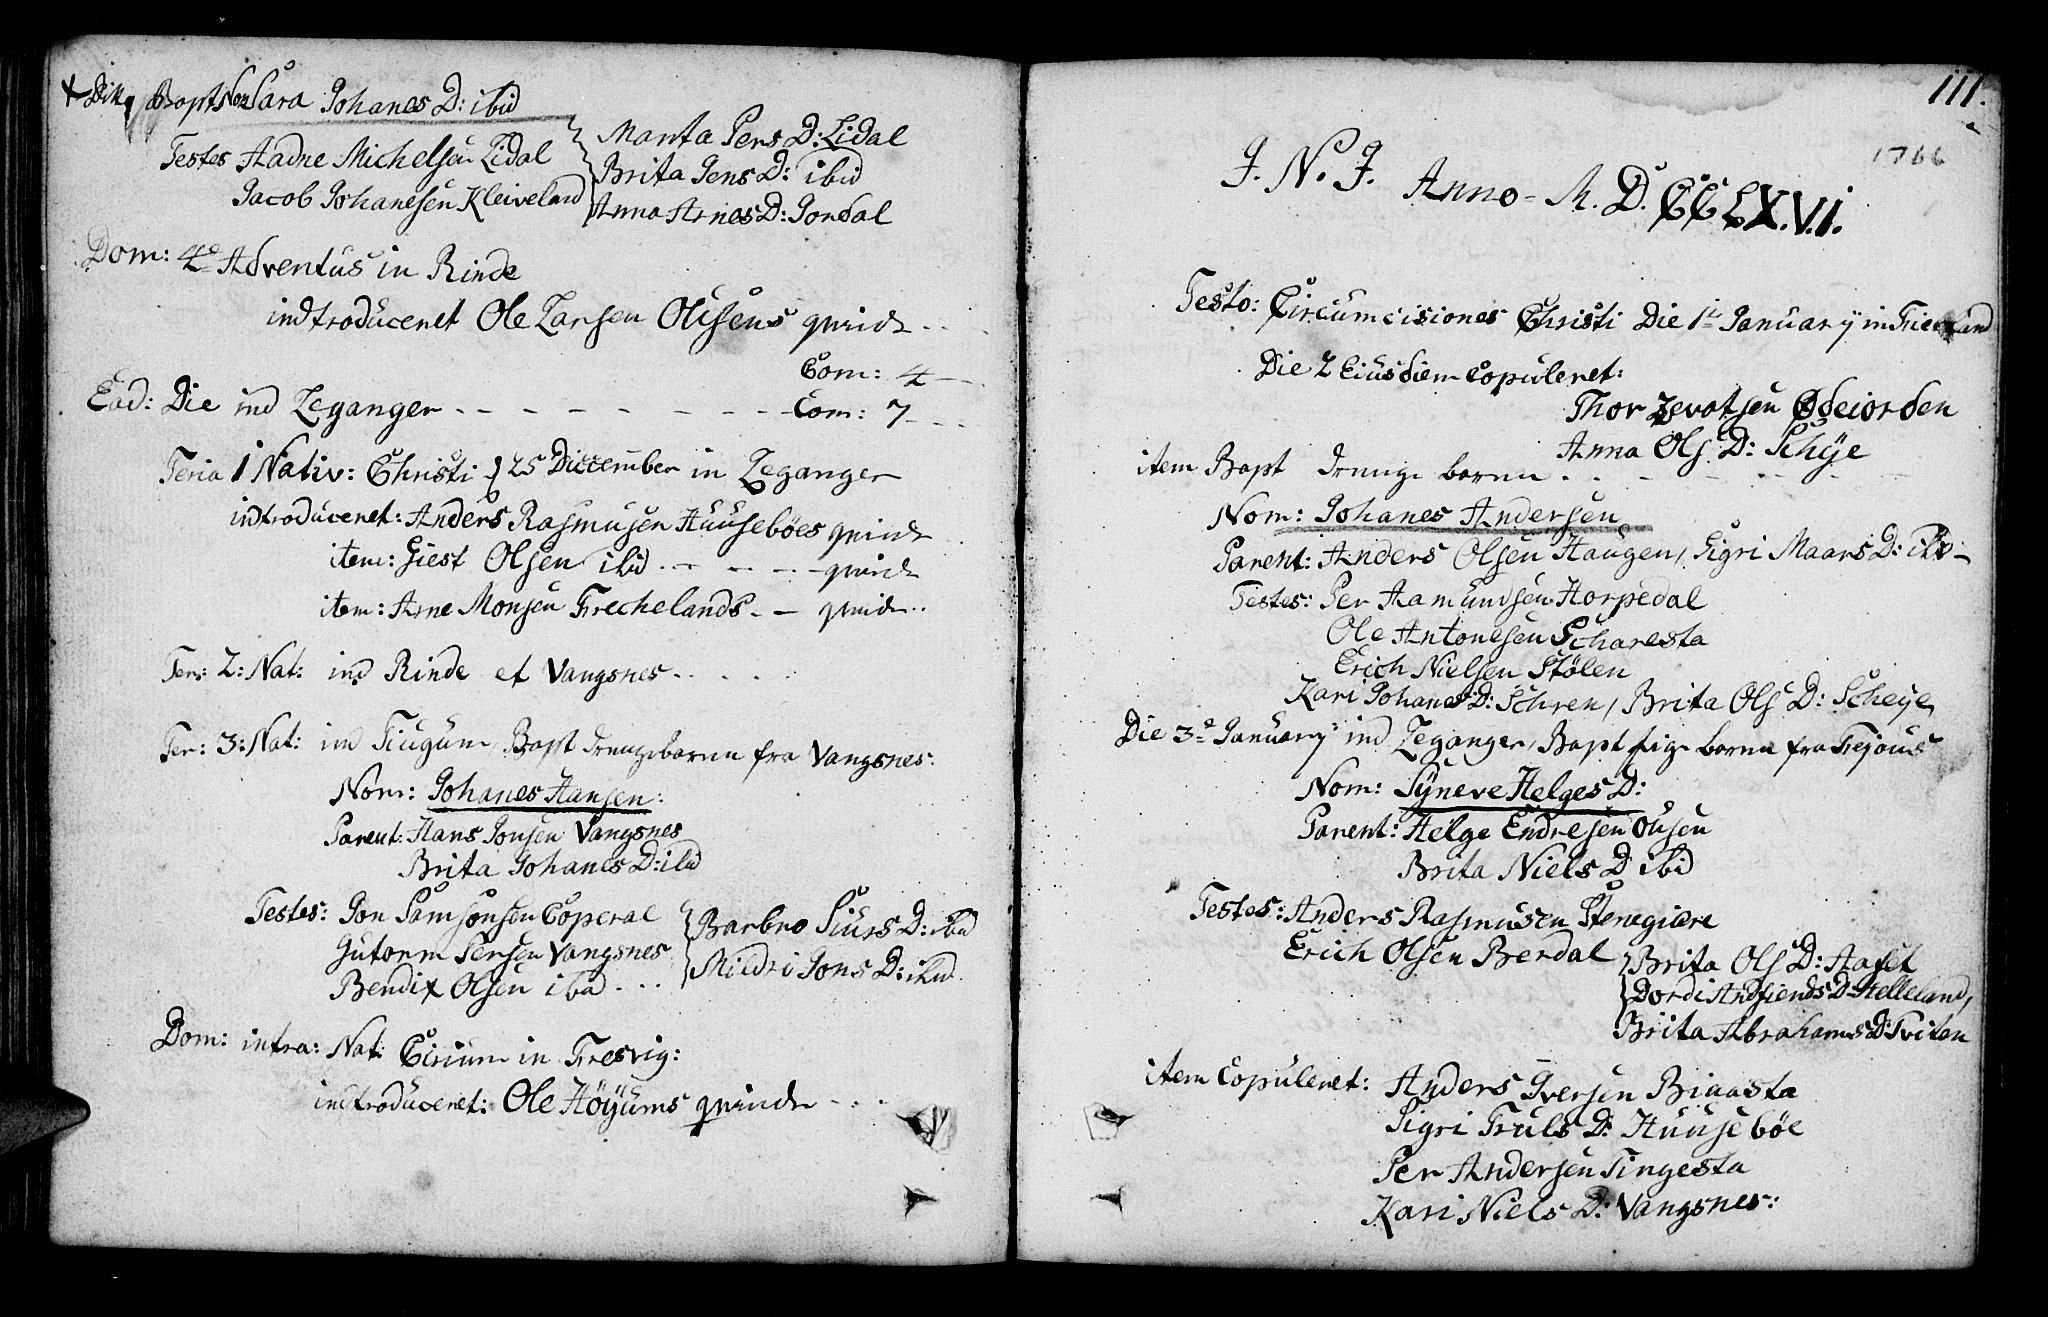 Bapt Nom Sara Johanes D: ibid
Testes Aadne Michelsen Lidal
Jacob Johanesen Kleiveland
Marita Pers D: Lidal
Brita Jens D: ibid
Anna Arnes D: Jordal
Dom: 4º Adventus in Rinde
indtroduceret Ole Larsen Olisens qvinde
Com: 4
Ead: Die ind Leganger Com: 7
Feria 1 Nativ: Christi 25 December in Leganger
indtroduceret: Anders Rasmusen Huuseböes qvinde
item: Giest Olsen ibid qvinde
item: Arne Monsen Frechelands qvinde
Fer: 2: Nat: ind Rinde et Vangsnes
Fer: 3: Nat: ind Tiugum, Bapt drengebaren fra Vangsnes:
Nom: Johanes Hansen:
Parent: Hans Jonsen Vangsnes
Brita Johanes D: ibid
Testes: Jon Samsonsen Coperal
Gutorm Persen Vangsnes
Bendix Olsen ibid
Barbro Siurs D: ibid
Mildri Jons D: ibid
Dom: intra: Nat: Cirium in Fresvig:
indtroduceret: Ole Höyums qvinde
111.
1766
J. N. J. Anno M. D. CCLX.V.i.
Festo: Circumcisiones Christi Die 1 January in Fierland
Die 2 Eiusdiem Copuleret:
Thor Sevatsen Ødeiorden
Anna Ols D: Schye
item Bapt drenge baren
Nom: Johanes Andersen
Parent: Anders Olsen Haugen, Sigri Maars D: ibid
Testes: Per Aamundsen Horpedal
Ole Antonesen Scharesta
Erich Nielsen Stølen
Kari Johanes D: Schren, Brita Ols D: Scheye
Die 3 January ind Leganger, Bapt pige baren fra Frejous
Nom: Syneve Helges D:
Parent: Helge Endresen Olisen
Brita Niels D ibid
Testes: Anders Rasmusen Stenegiære
Erich Olsen Berdal
Brita Ols D: Aafet
Dordi Andfiends D Stelleland,
Brita Abrahams D: Tviten
item Copuleret: Anders Iversen Binasta
Sigri Truls D: Huuseböe
Per Andersen Tingesta
Kari Niels D: Vangsnes: